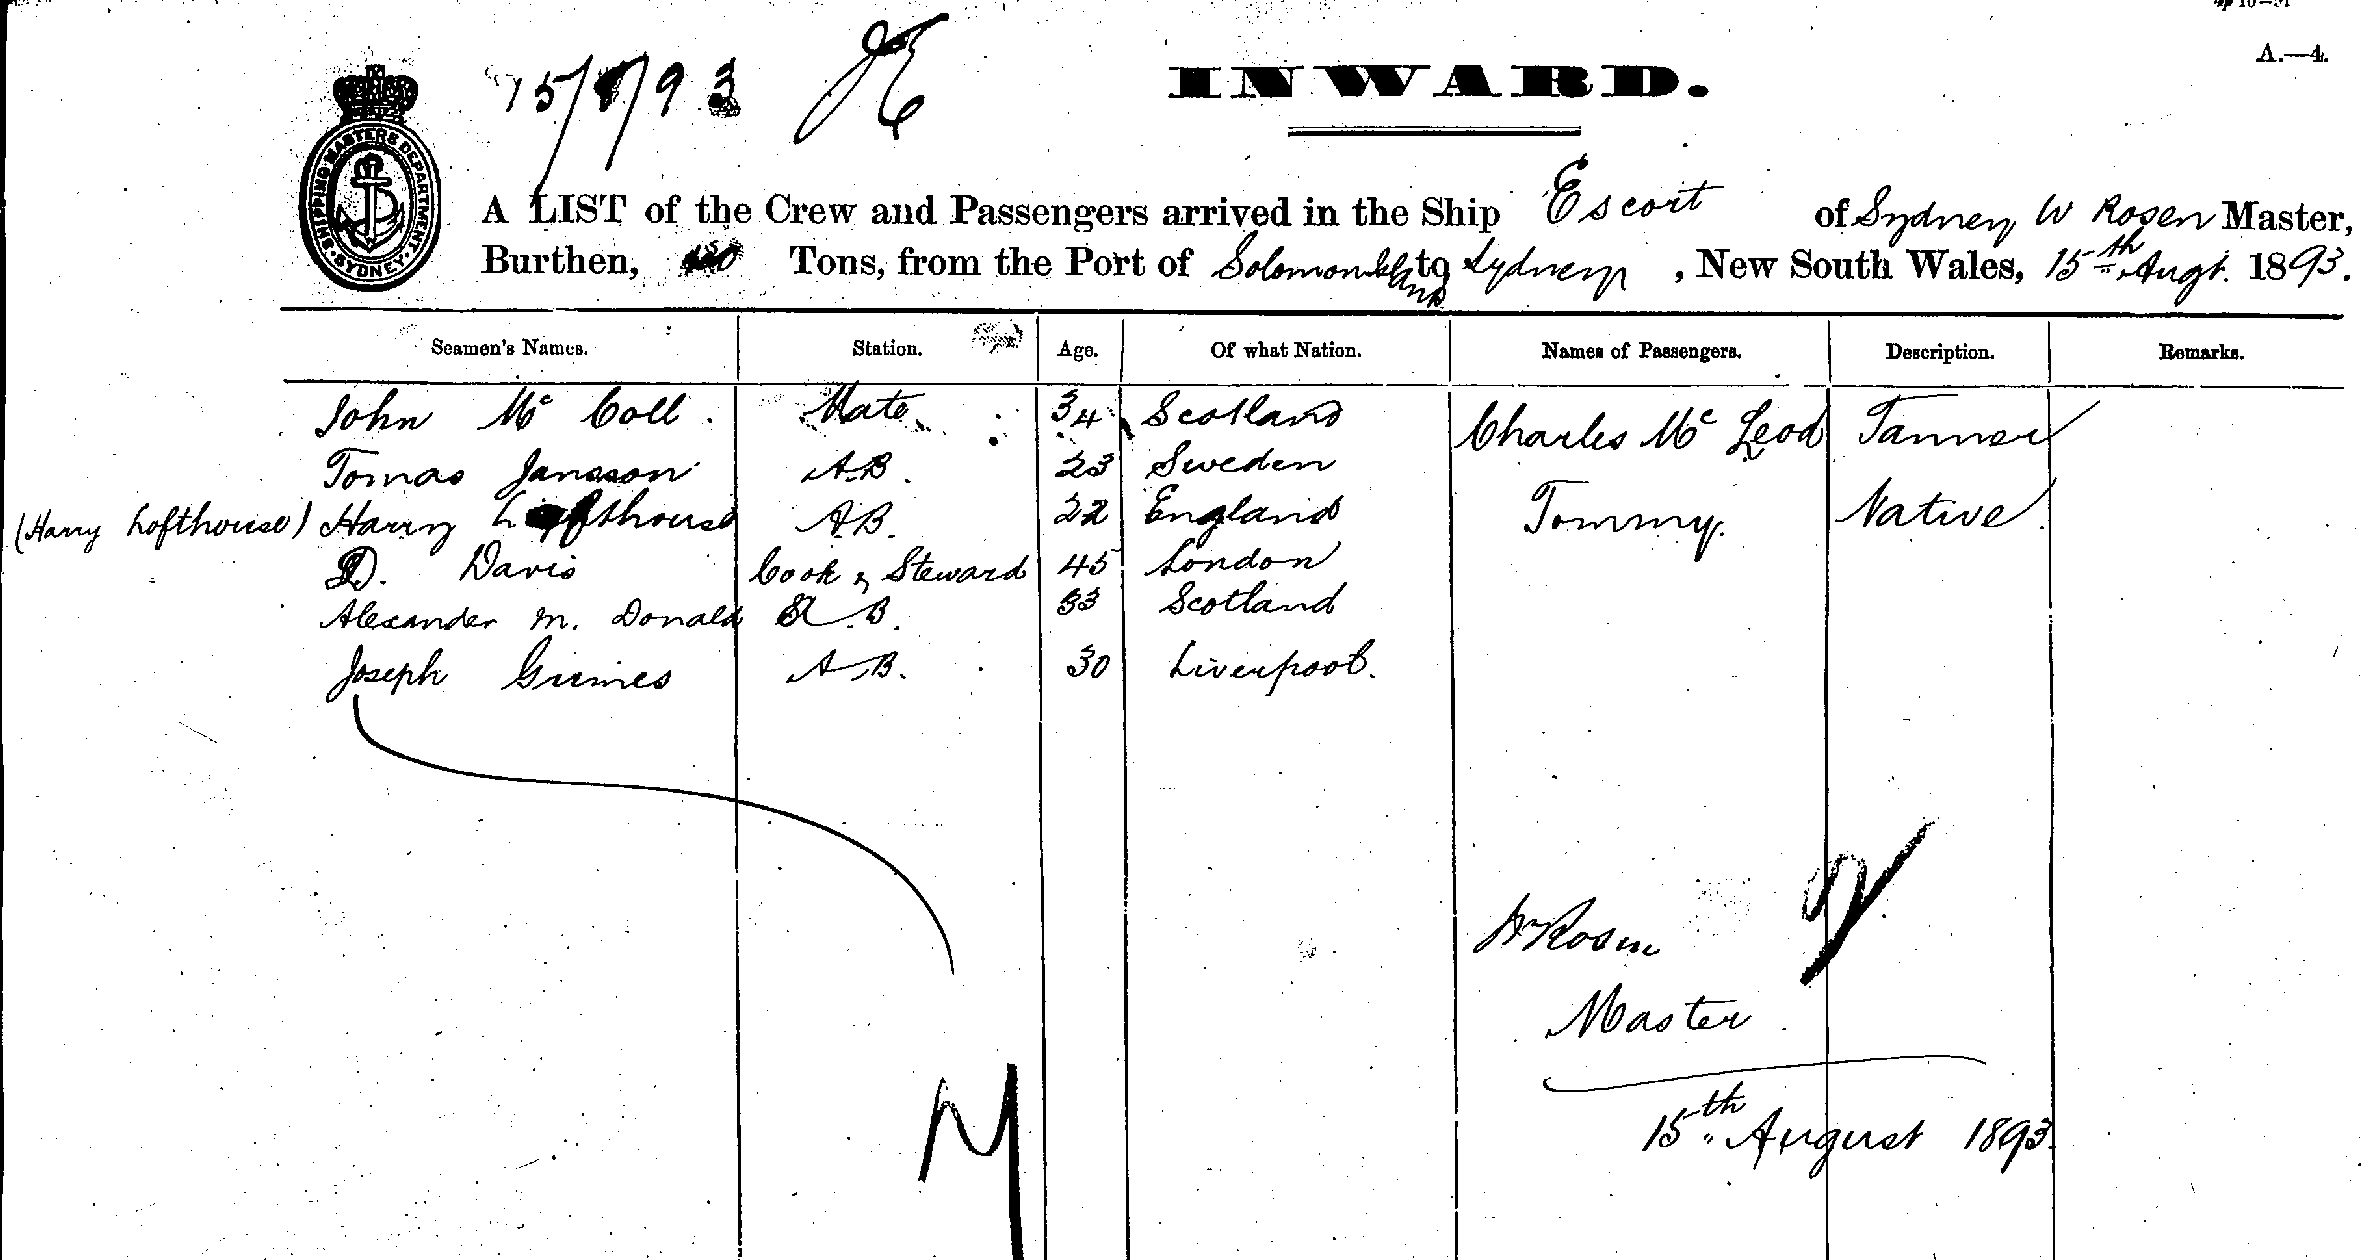 A.—4.
15/8/93
INWARD.
SHIPPING MASTERS DEPARTMENT SYDNEY
A LIST of the Crew and Passengers arrived in the Ship Escort of Sydney W Rosen Master,
Burthen, Tons, from the Port of Solomon Islands to Sydney, New South Wales, 15th Augt. 1893.
Seamen's Names. Station. Age. Of what Nation. Names of Passengers. Description. Remarks.
John Mc Coll. Mate 34 Scotland Charles Mc Leod Tanner
Tomas Jansson A.B. 23 Sweden
(Harry Lofthouse) Harry Lofthouse A.B. 22 England Tommy. Native
D. Davis Cook & Steward 45 London
Alexander M. Donald A.B. 33 Scotland
Joseph Grimes A.B. 30 Liverpool.
W Rosen
Master
15th August 1893.